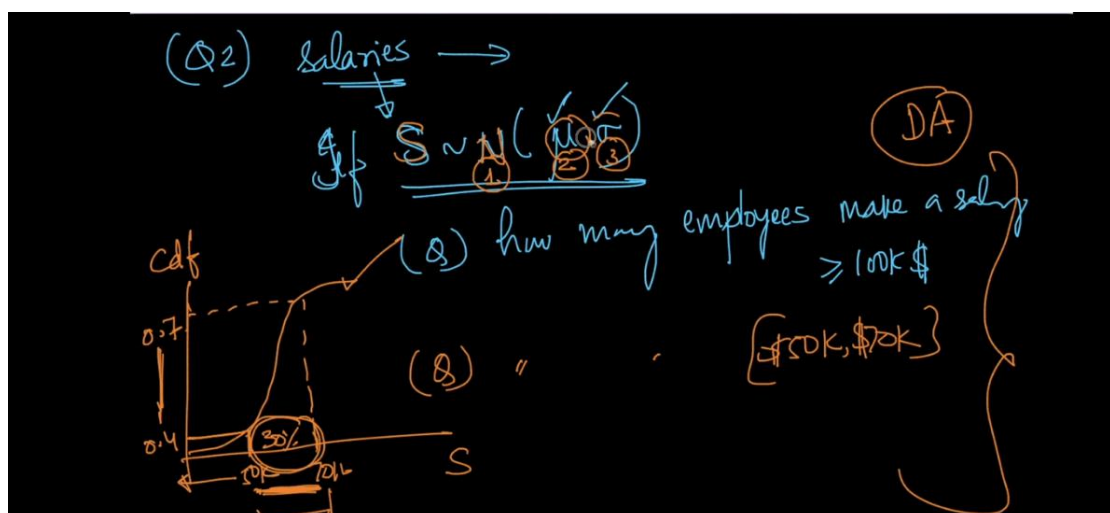 (Q2) Salaries →
If S ~ N(μ, σ)
1. 2 3
DA
(Q) how many employees make a salary
≥ 100K $
cdf
0.7
(Q) " " [$50K, $70K]
0.4
30%
S
50K 70K